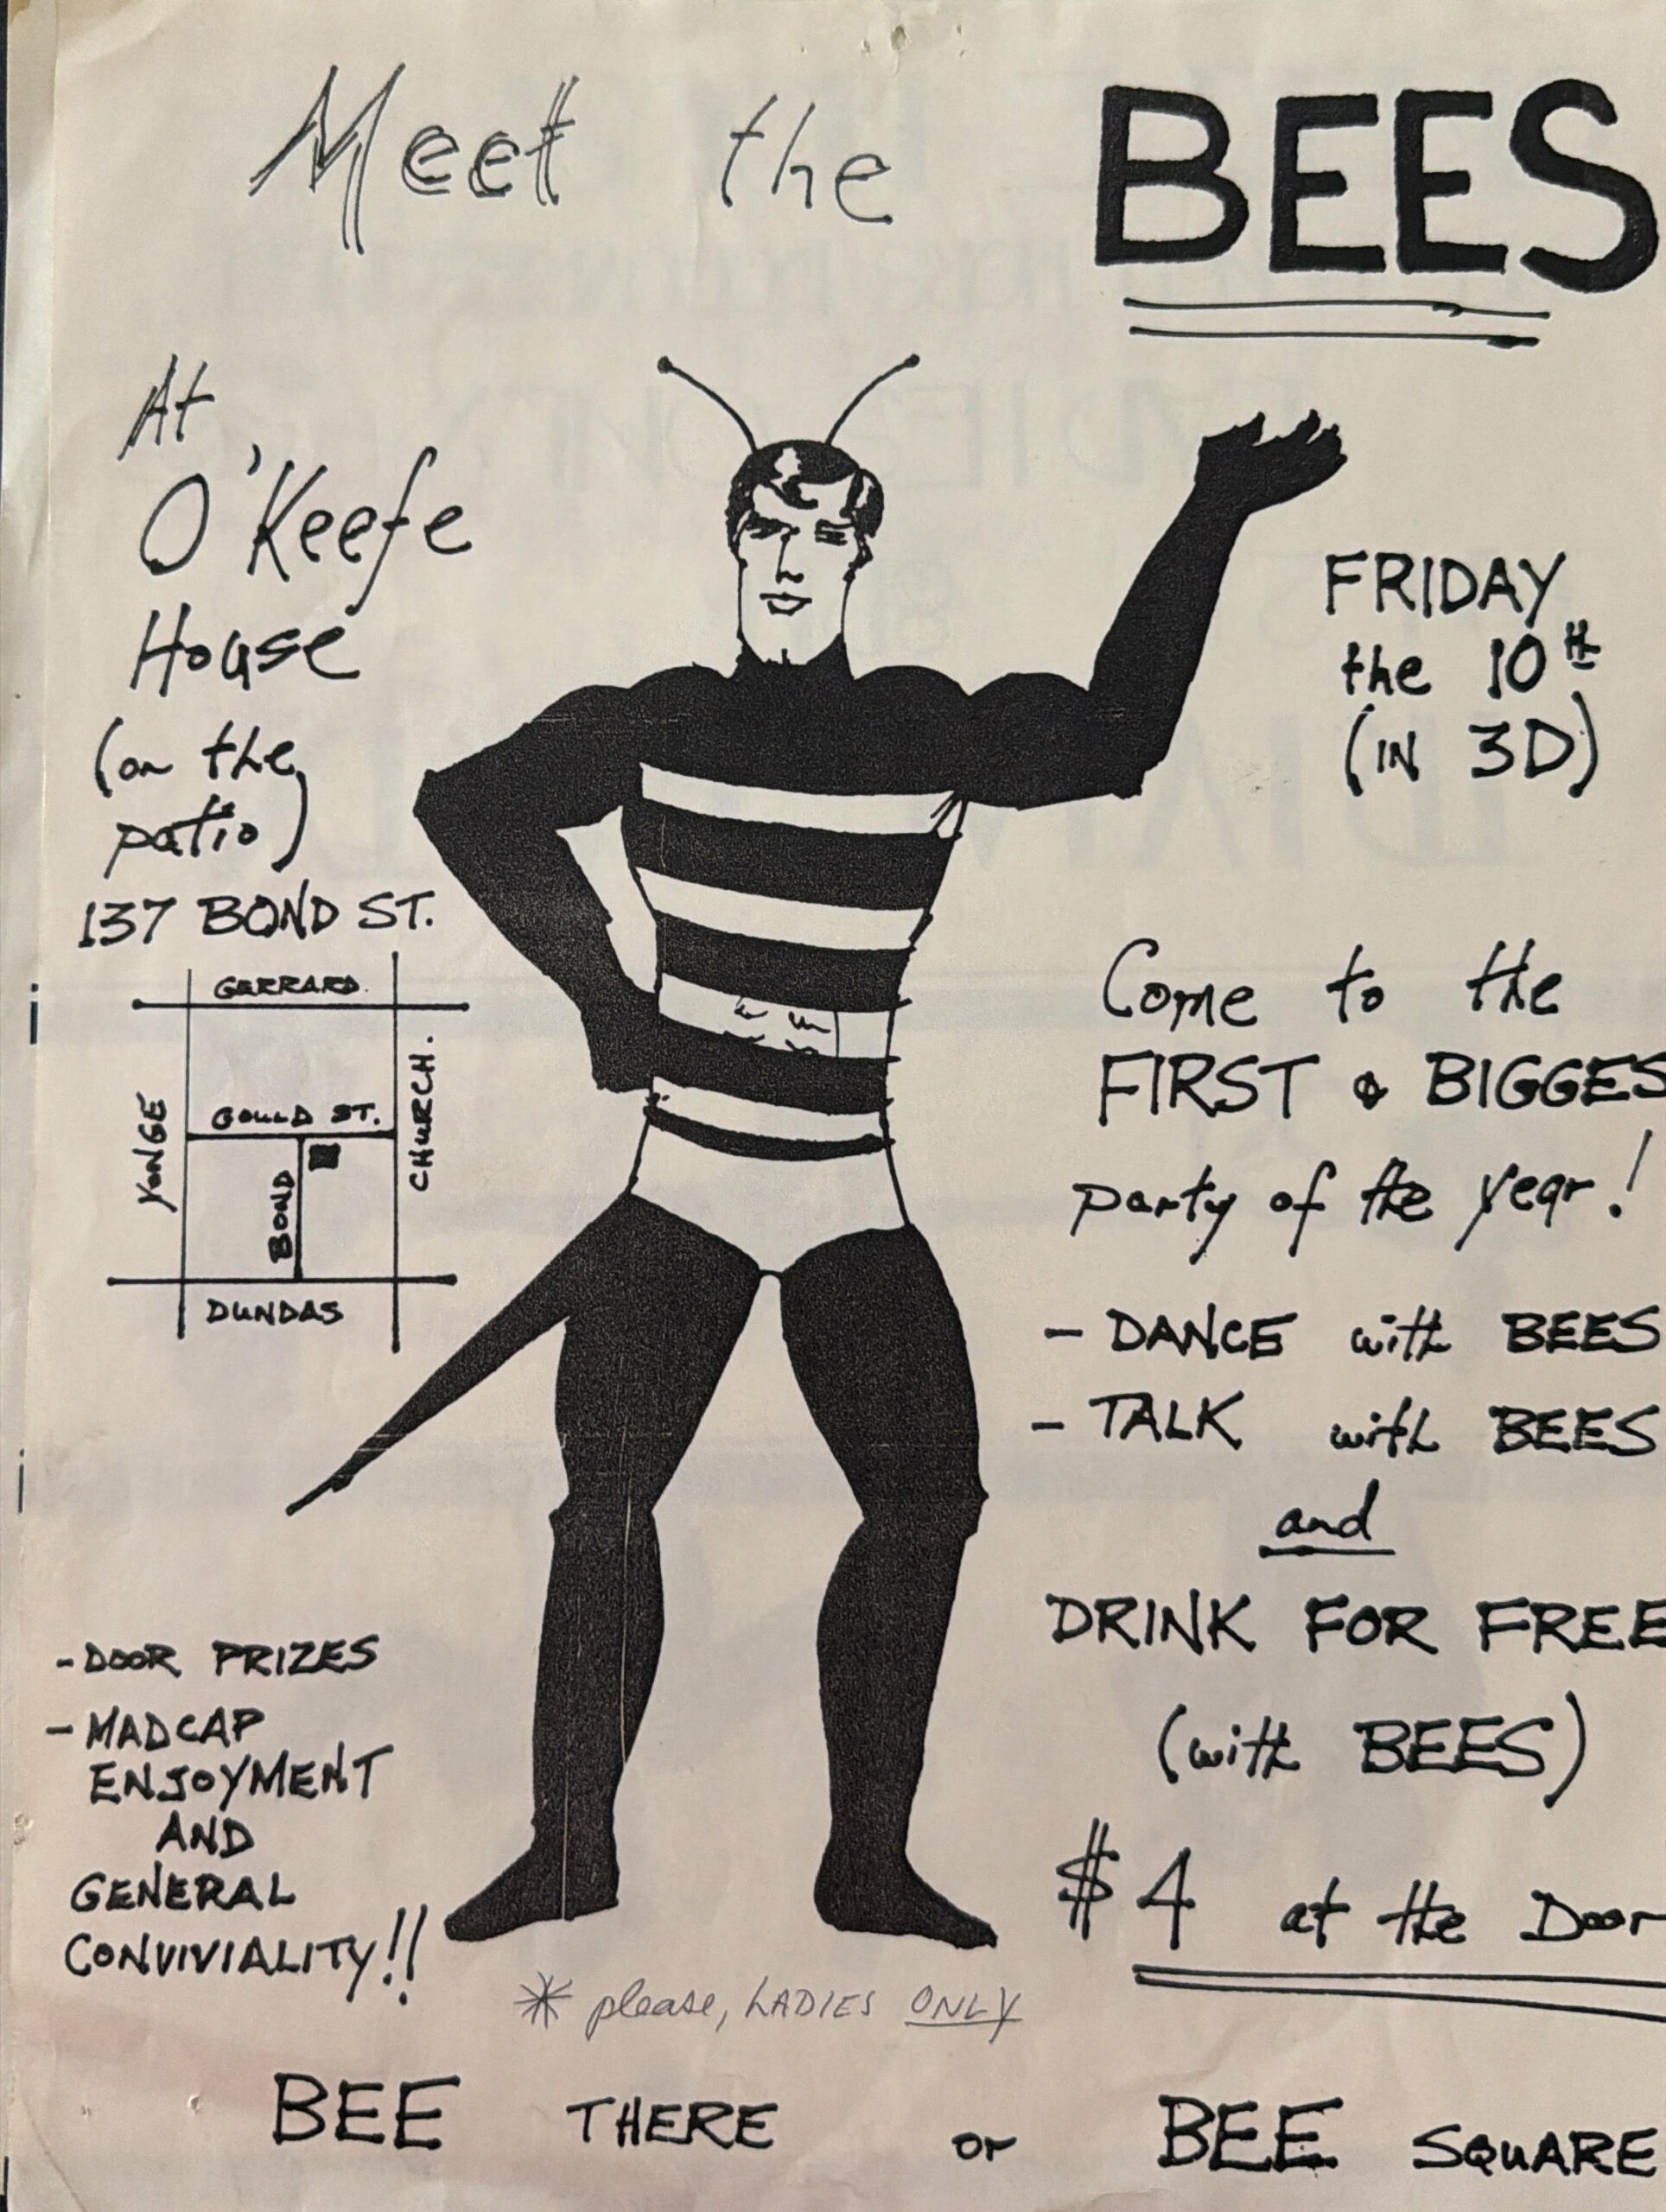 Meet the BEES
At
O'Keefe
House
(on the
patio)
137 BOND ST.
GERRARD
YONGE
GOULD ST.
CHURCH.
BOND
DUNDAS
FRIDAY
the 10th
(IN 3D)
Come to the
FIRST & BIGGES
party of the year!
- DANCE with BEES
- TALK with BEES
and
DRINK FOR FREE
(with BEES)
$4 at the Door
- DOOR PRIZES
- MADCAP
ENJOYMENT
AND
GENERAL
CONVIVIALITY!!
* please, LADIES ONLY
BEE THERE or BEE SQUARE